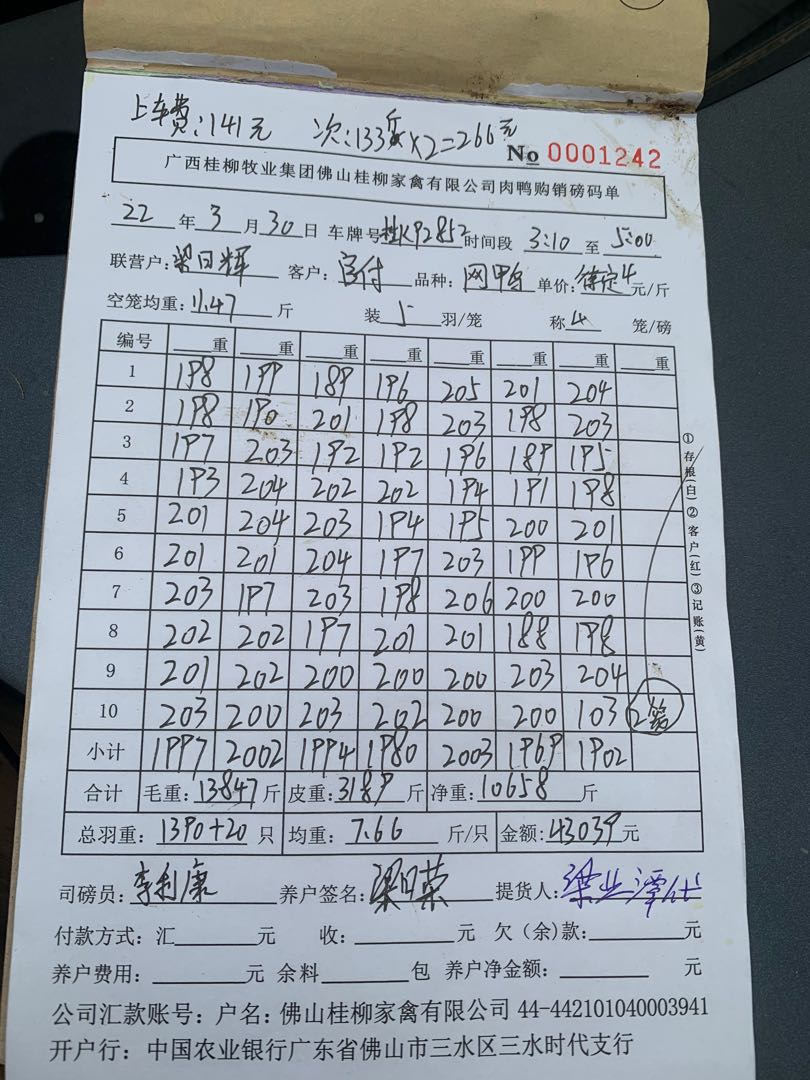 上车费:141元 次:133斤×2=266元
No 0001242
广西桂柳牧业集团佛山桂柳家禽有限公司肉鸭购销磅码单
22 年 3 月 30 日 车牌号 桂K92852 时间段 3:10 至 5:00
联营户: 梁日辉 客户: 官付 品种: 网甲鸟 单价: 待定4 元/斤
空笼均重: 11.47 斤 装 5 羽/笼 称 4 笼/磅
编号 重 重 重 重 重 重 重 重
1 198 199 189 196 205 201 204
2 198 190 201 198 203 198 203
3 197 203 192 192 196 189 195
4 193 204 202 202 194 191 198
5 201 204 203 194 195 200 201
6 201 201 204 197 203 199 196
7 203 197 203 198 206 200 200
8 202 202 197 201 201 188 198
9 201 202 200 200 200 203 204
10 203 200 203 202 200 200 103 2笼
小计 1997 2002 1994 1980 2003 1969 1902
合计 毛重: 13847 斤 皮重: 3189 斤 净重: 10658 斤
总羽重: 1390+20 只 均重: 7.66 斤/只 金额: 43039 元
司磅员: 李利康 养户签名: 梁日荣 提货人: 梁业潭代
付款方式: 汇 元 收: 元 欠(余)款: 元
养户费用: 元 余料 包 养户净金额: 元
公司汇款账号: 户名: 佛山桂柳家禽有限公司 44-442101040003941
开户行: 中国农业银行广东省佛山市三水区三水时代支行
①存根(白)②客户(红)③记账(黄)